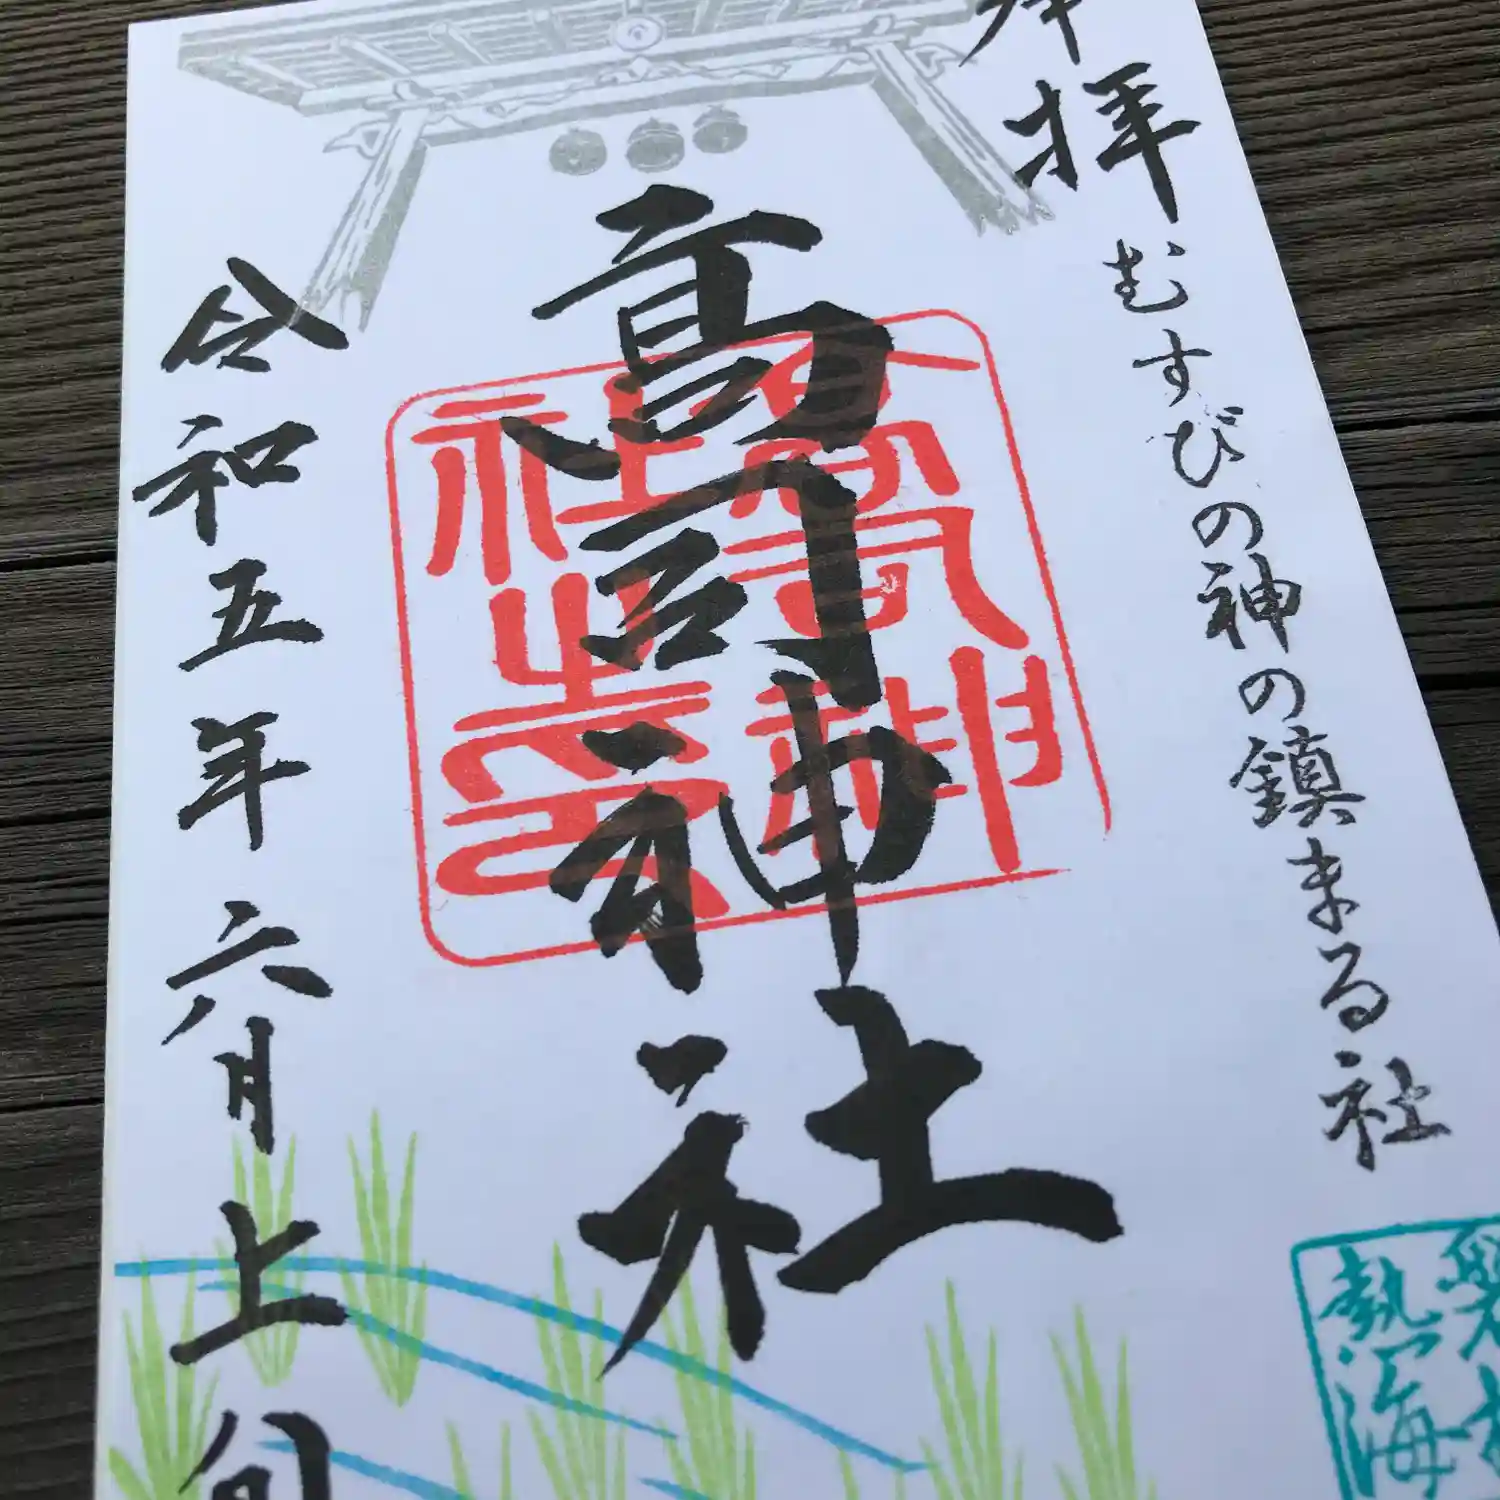 奉拝
むすびの神の鎮まる社
高司神社
高司神
社之印
令和五年六月上旬
磐
熱海